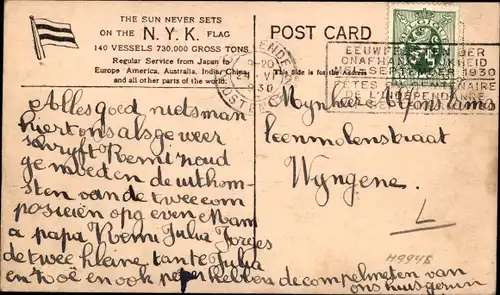 THE SUN NEVER SETS
ON THE N. Y. K. FLAG
140 VESSELS 730.000 GROSS TONS
Regular Service from Japan to
Europe America, Australia, India, China,
and all other parts of the world.
POST CARD
This side is for the Address
OOSTENDE
1930
EEUWFEESTEN DER
ONAFHANKELIJKHEID
1930
FETES DU CENTENAIRE
INDEPENDANCE
Alles goed nietsman
hiert ons als ge weer
schryft Remi noud
gemoeden de uithom-
sten van de twee com
posicien opgeven Mam
a papa Remi Julia Jorges
de twee kleine tante Julia
en Zoë en ook peper hebben de compelmeten van
ons huisgezin
Mynheer Alfons Lams
leenmolenstraat
Wyngene.
L
H9948